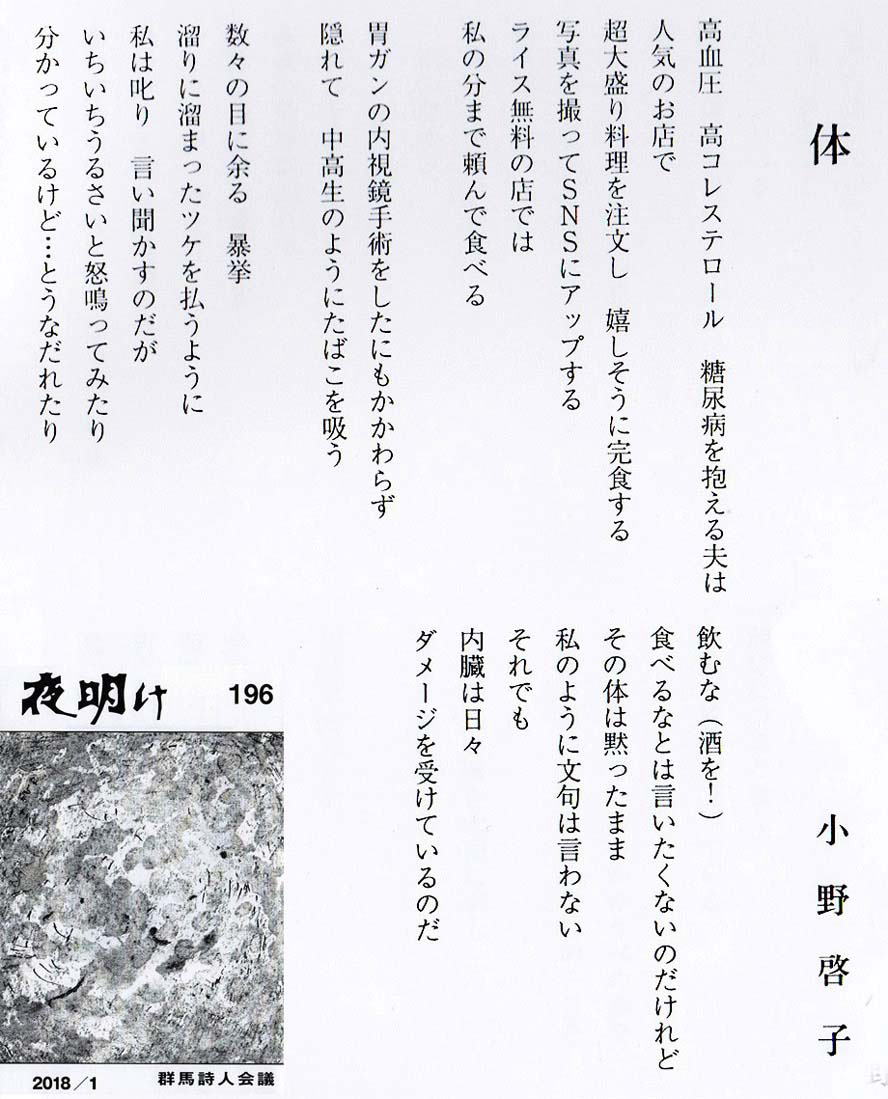 体
小野啓子
高血圧　高コレステロール　糖尿病を抱える夫は
人気のお店で
超大盛り料理を注文し　嬉しそうに完食する
写真を撮ってＳＮＳにアップする
ライス無料の店では
私の分まで頼んで食べる
胃ガンの内視鏡手術をしたにもかかわらず
隠れて　中高生のようにたばこを吸う
数々の目に余る　暴挙
溜りに溜まったツケを払うように
私は叱り　言い聞かすのだが
いちいちうるさいと怒鳴ってみたり
分かっているけど…とうなだれたり
飲むな（酒を！）
食べるなとは言いたくないのだけれど
その体は黙ったまま
私のように文句は言わない
それでも
内臓は日々
ダメージを受けているのだ
夜明け
196
2018／1
群馬詩人会議